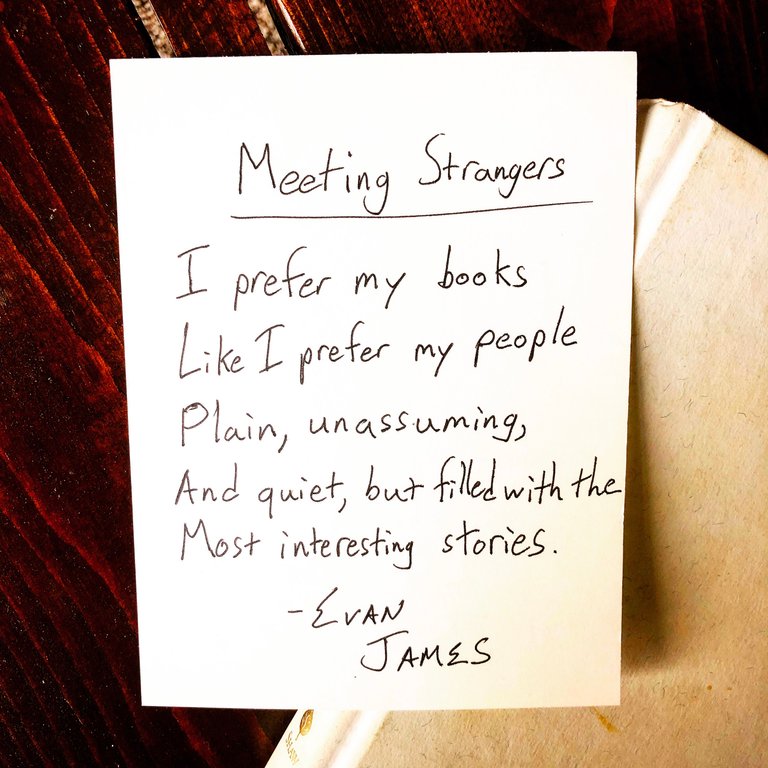 Meeting Strangers
I prefer my books
Like I prefer my people
Plain, unassuming,
And quiet, but filled with the
Most interesting stories.
-EVAN
JAMES